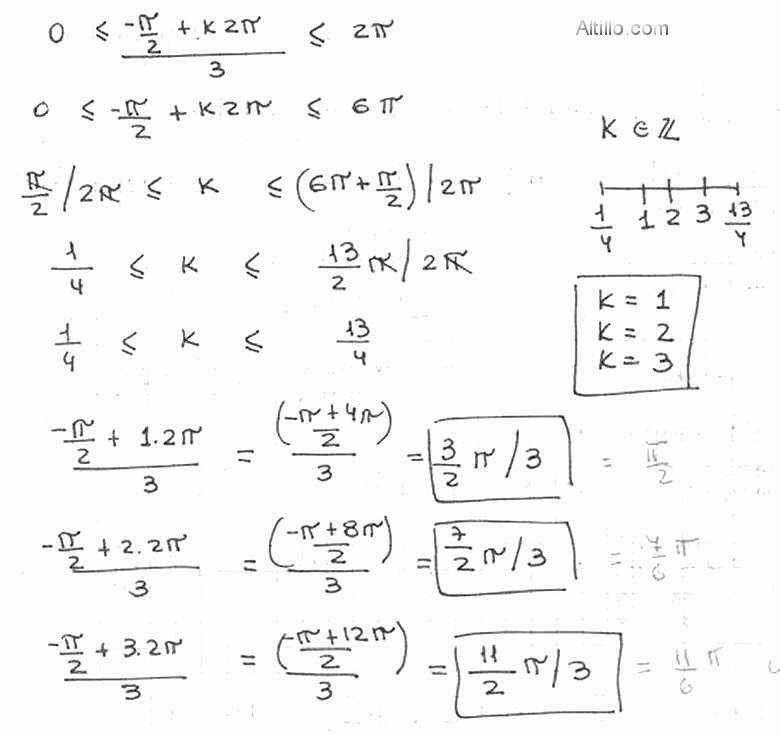 Altillo.com
0 ≤ (-π/2 + K2π)/3 ≤ 2π
0 ≤ -π/2 + K2π ≤ 6π
K ∈ ℤ
π/2 / 2π ≤ K ≤ (6π + π/2) / 2π
1/4 1 2 3 13/4
1/4 ≤ K ≤ 13/2 π / 2π
K = 1
K = 2
K = 3
1/4 ≤ K ≤ 13/4
(-π/2 + 1.2π)/3 = ((-π + 4π)/2)/3 = 3/2 π / 3 = π/2
(-π/2 + 2.2π)/3 = ((-π + 8π)/2)/3 = 7/2 π / 3 = 7/6 π
(-π/2 + 3.2π)/3 = ((-π + 12π)/2)/3 = 11/2 π / 3 = 11/6 π